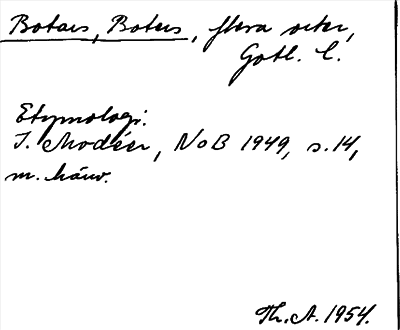 Botars, Boters, flera orter,
Gotl. l.
Etymologi.
I. Modéer, NoB 1949, s. 14,
m. hänv.
Th. A. 1954.